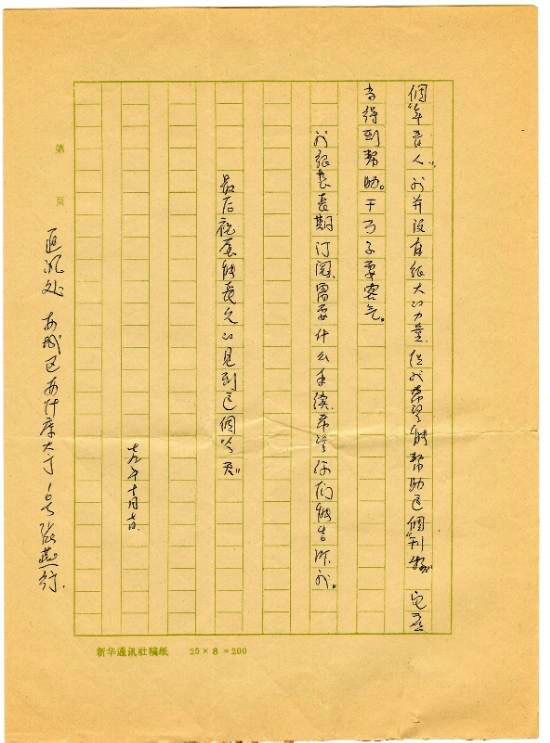 個“年長人”，我并没有很大的力量，但我希望能帮助这個刊物，它应
当得到帮助。千万不要客气。
我很长期订阅，需要什么手续，希望你们能告诉我。
最后祝愿能长久的见到这個“今天”
七九年十月
通讯处 大 1号
第 页
新华通讯社稿纸 25×8=200